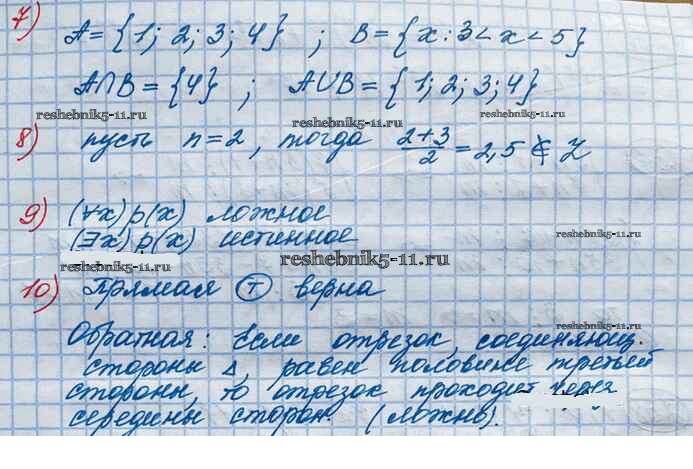 7) A = {1; 2; 3; 4} ; B = {x : 3 < x < 5}
A∩B = {4} ; A∪B = {1; 2; 3; 4}
reshebnik5-11.ru
reshebnik5-11.ru
8) пусть n = 2, тогда (2+3)/2 = 2,5 ∉ Z
reshebnik5-11.ru
9) (∀x) p(x) ложное
(∃x) p(x) истинное
reshebnik5-11.ru
reshebnik5-11.ru
10) Прямая Т верна
reshebnik5-11.ru
Обратная: Если отрезок, соединяющ.
стороны Δ, равен половине третьей
стороны, то отрезок проходит через
reshebnik5-11.ru
середины сторон. (ложно).